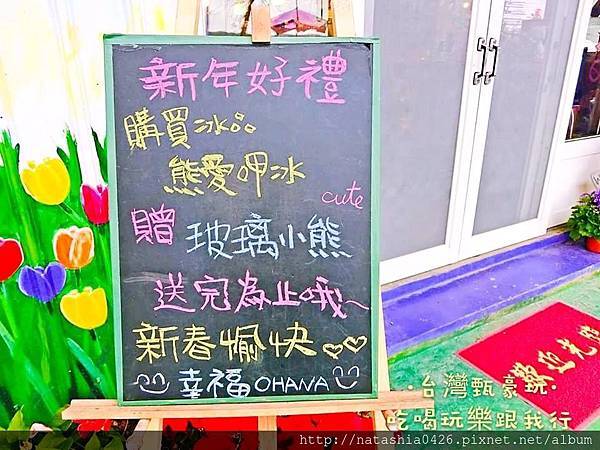 新年好禮
購買冰品
熊愛呷冰
cute
贈 玻璃小熊
送完為止哦~
新春愉快♡♡
幸福OHANA
歡迎光臨
·台灣甄豪玩·
吃喝玩樂跟我行
http://natashia0426.pixnet.net/album